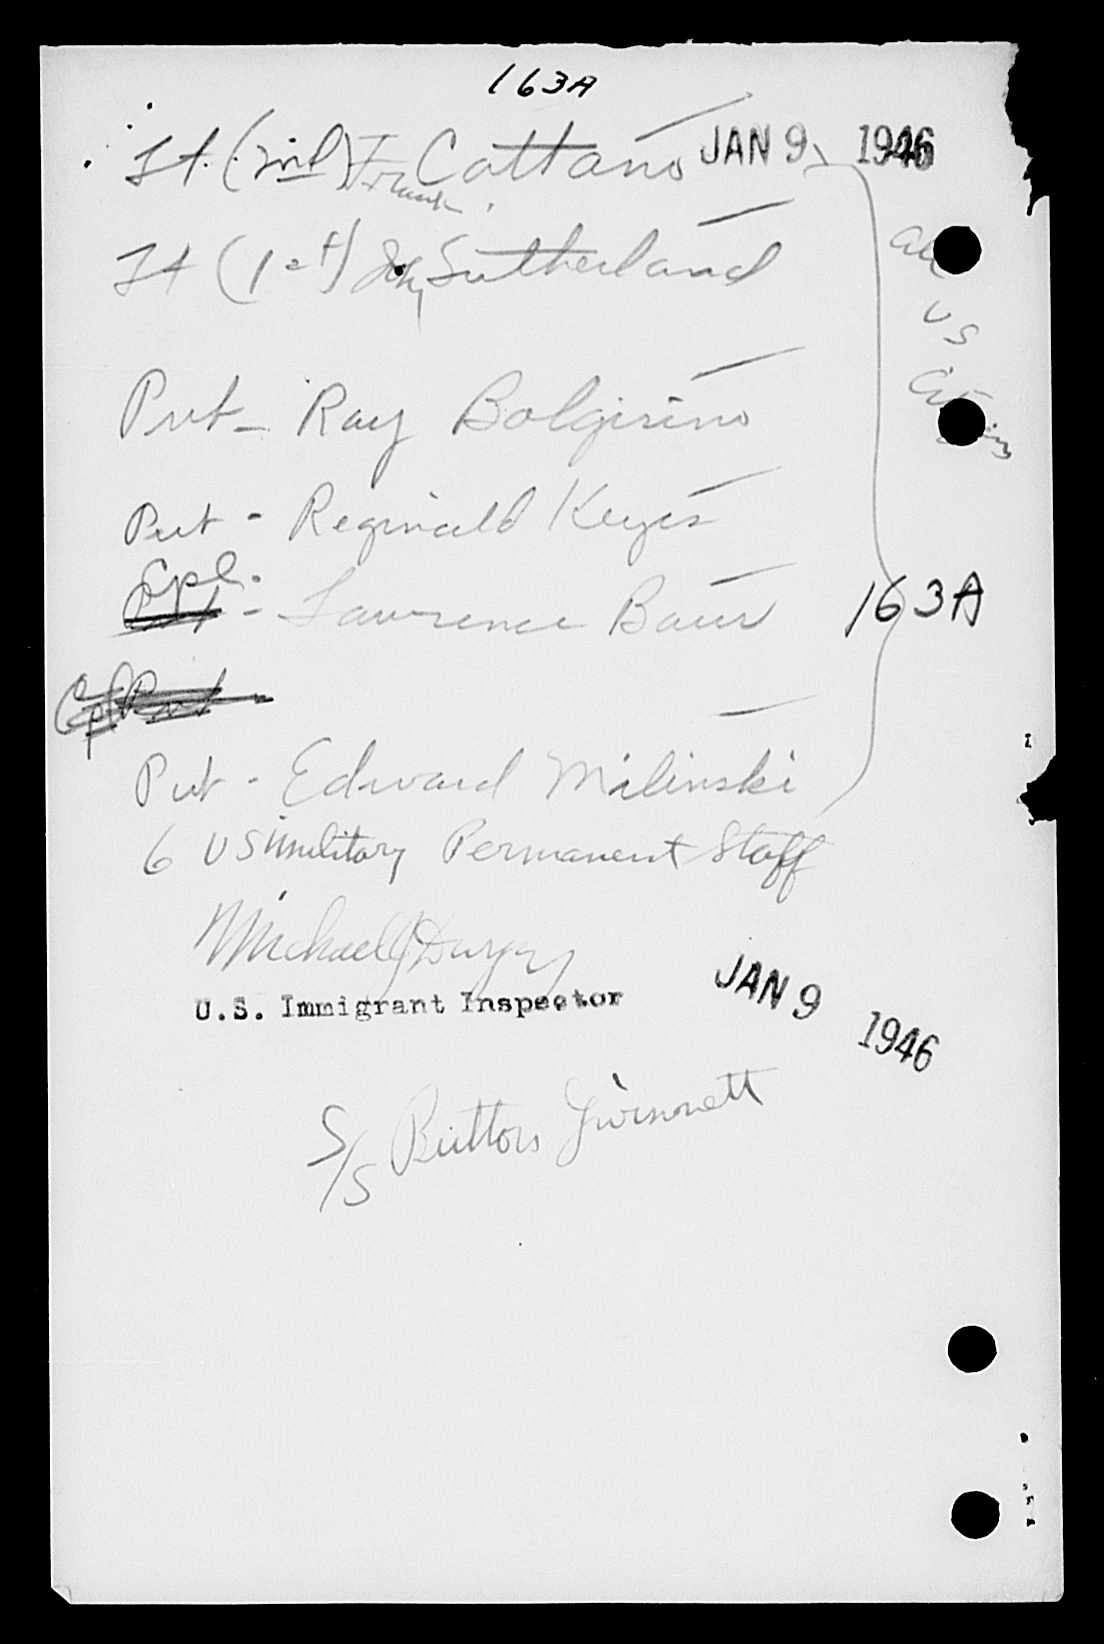 163A
Lt. (2nd) Frank Cattano JAN 9 1946
Lt (1st) Sutherland
all
US
Pvt - Ray Bolgirino
Pvt - Reginald Keyes
Cpl. - Lawrence Baur
163A
Cpl Pvt -
Pvt - Edward Milinski
6 US Military Permanent Staff
Michael J Dwyer
U.S. Immigrant Inspector
JAN 9 1946
S/S Button Gwinnett